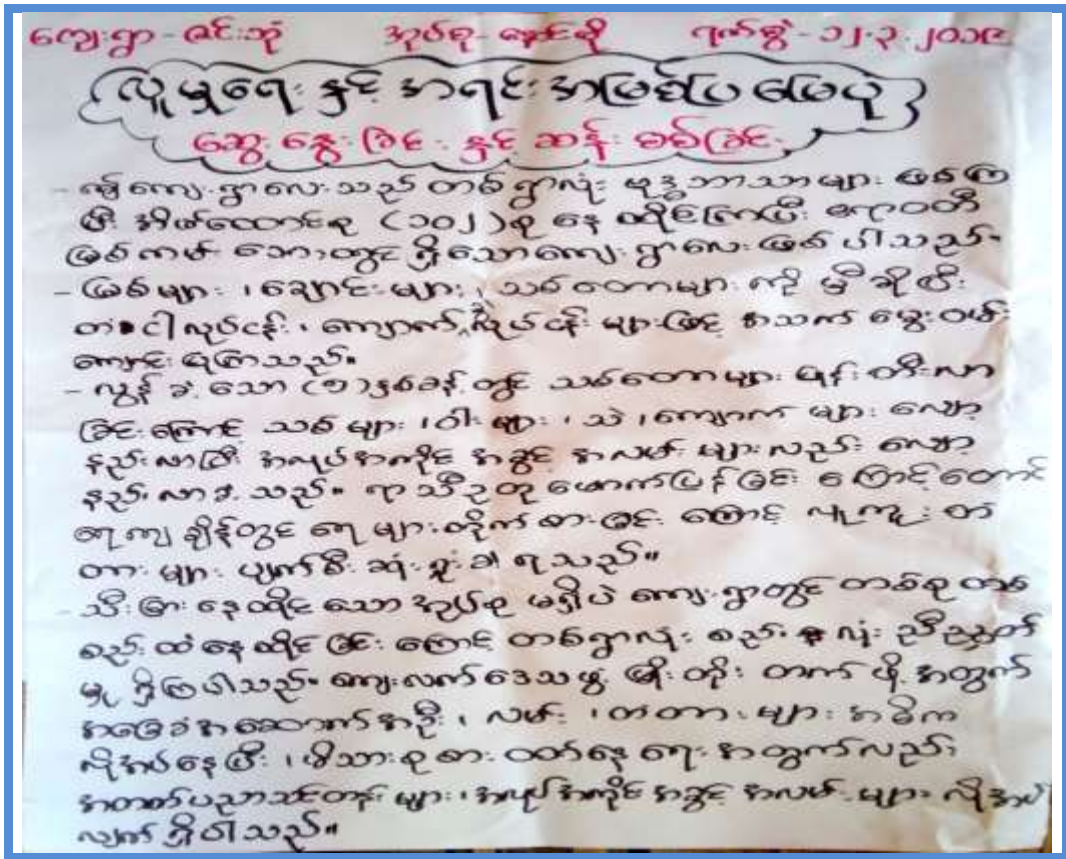 ကျေးရွာ - ဇင်းဘုံ အုပ်စု - နောင်ဆို ရက်စွဲ - ၁၂.၃.၂၀၁၉
လူမှုရေး နှင့် အရင်းအမြစ်ပြ မြေပုံ
ဆွေးနွေးခြင်း နှင့် ဆန်းစစ်ခြင်း
- ကျေးရွာလေးသည် တစ်ရွာလုံး ဗုဒ္ဓဘာသာများ ဖြစ်ကြ
ပြီး အိမ်ထောင်စု (၁၀၂)စု နေထိုင်ကြပြီး ဧရာဝတီ
မြစ်ကမ်း ဘေးတွင် ရှိသောကျေးရွာလေး ဖြစ်ပါသည်။
- မြစ်များ ၊ ချောင်းများ ၊ သစ်တောများ ကို မှီခိုပြီး
တံငါလုပ်ငန်း ၊ ကျောက်လုပ်ငန်း များဖြင့် အသက်မွေးဝမ်း
ကျောင်းပြုကြသည်။
- လွန်ခဲ့သော (၅)နှစ်ခန့်တွင် သစ်တောများ ပြုန်းတီးလာ
ခြင်းကြောင့် သစ်များ ၊ ဝါးများ ၊ သဲ ၊ ကျောက် များ လျော့
နည်းလာပြီး အလုပ်အကိုင် အခွင့် အလမ်း များလည်း လျော့
နည်းလာခဲ့သည်။ ရာသီဥတု ဖောက်ပြန်ခြင်း ကြောင့် တောင်
ရေကျချိန်တွင် ရေများတိုက်စားခြင်း ကြောင့် လူကူး တံ
တား များ ပျက်စီး ဆုံးရှုံးခဲ့ရသည်။
- သီးခြား နေထိုင်သော အုပ်စု မရှိပဲ ကျေးရွာတွင် တစ်စု တစ်
စည်း ထဲနေထိုင်ခြင်း ကြောင့် တစ်ရွာလုံး စည်းလုံး ညီညွတ်
မှု ရှိကြပါသည်။ ကျေးလက်ဒေသဖွံ့ဖြိုးတိုးတက်ဖို့အတွက်
အခြေခံအဆောက်အဦး ၊ လမ်း ၊ တံတားများ အဓိက
လိုအပ်နေပြီး ၊ မိသားစု စားဝတ်နေရေးအတွက်လည်း
အတတ်ပညာသင်တန်းများ ၊ အလုပ်အကိုင်အခွင့်အလမ်းများ လိုအပ်
လျက်ရှိပါသည်။